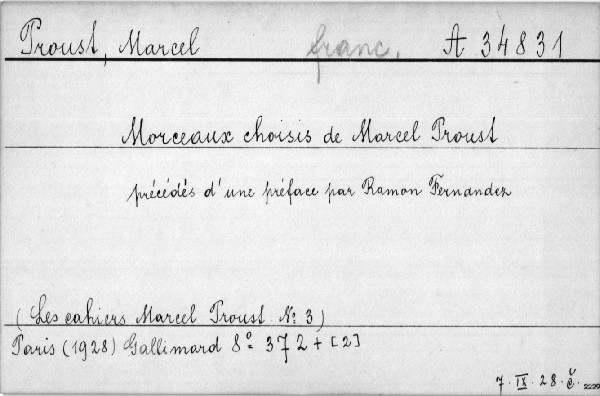 Proust, Marcel franc. A 34831
Morceaux choisis de Marcel Proust
précédés d'une préface par Ramon Fernandez
(Les cahiers Marcel Proust No: 3)
Paris (1928) Gallimard 8º 372 + [2]
7. IX. 28. č.